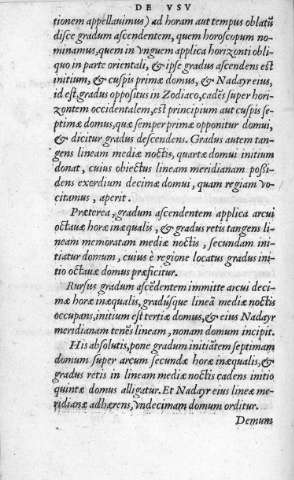 DE VSV
tionem appellauimus) ad horam aut tempus oblatũ
disce gradum ascendentem, quem horoscopum no-
minamus, quem in vnguem applica horizonti obli-
quo in parte orientali, & ipse gradus ascendens est
initium, & cuspis primæ domus, & Nadayr eius,
id est, gradus oppositus in Zodiaco, cadẽs super hori-
zontem occidentalem, est principium aut cuspis se-
ptimæ domus, quæ semper primæ opponitur domui,
& dicitur gradus descendens. Gradus autem tan-
gens lineam mediæ noctis, quartæ domui initium
donat, cuius obiectus lineam meridianam possi-
dens exordium decimæ domui, quam regiam vo-
citamus, aperit.
Præterea, gradum ascendentem applica arcui
octauæ horæ inæqualis, & gradus retis tangens li-
neam memoratam mediæ noctis, secundam ini-
tiatur domum, cuius è regione locatus gradus ini-
tio octauæ domus præficitur.
Rursus gradum ascẽdentem immitte arcui deci-
mæ horæ inæqualis, gradusque lineã mediæ noctis
occupans, initium est tertiæ domus, & eius Nadayr
meridianam tenẽs lineam, nonam domum incipit.
His absolutis, pone gradum initiãtem septimam
domum super arcum secundæ horæ inæqualis, &
gradus retis in lineam mediæ noctis cadens initio
quintæ domus alligatur. Et Nadayr eius lineæ me-
ridianæ adhærens, vndecimam domum orditur.
Demum